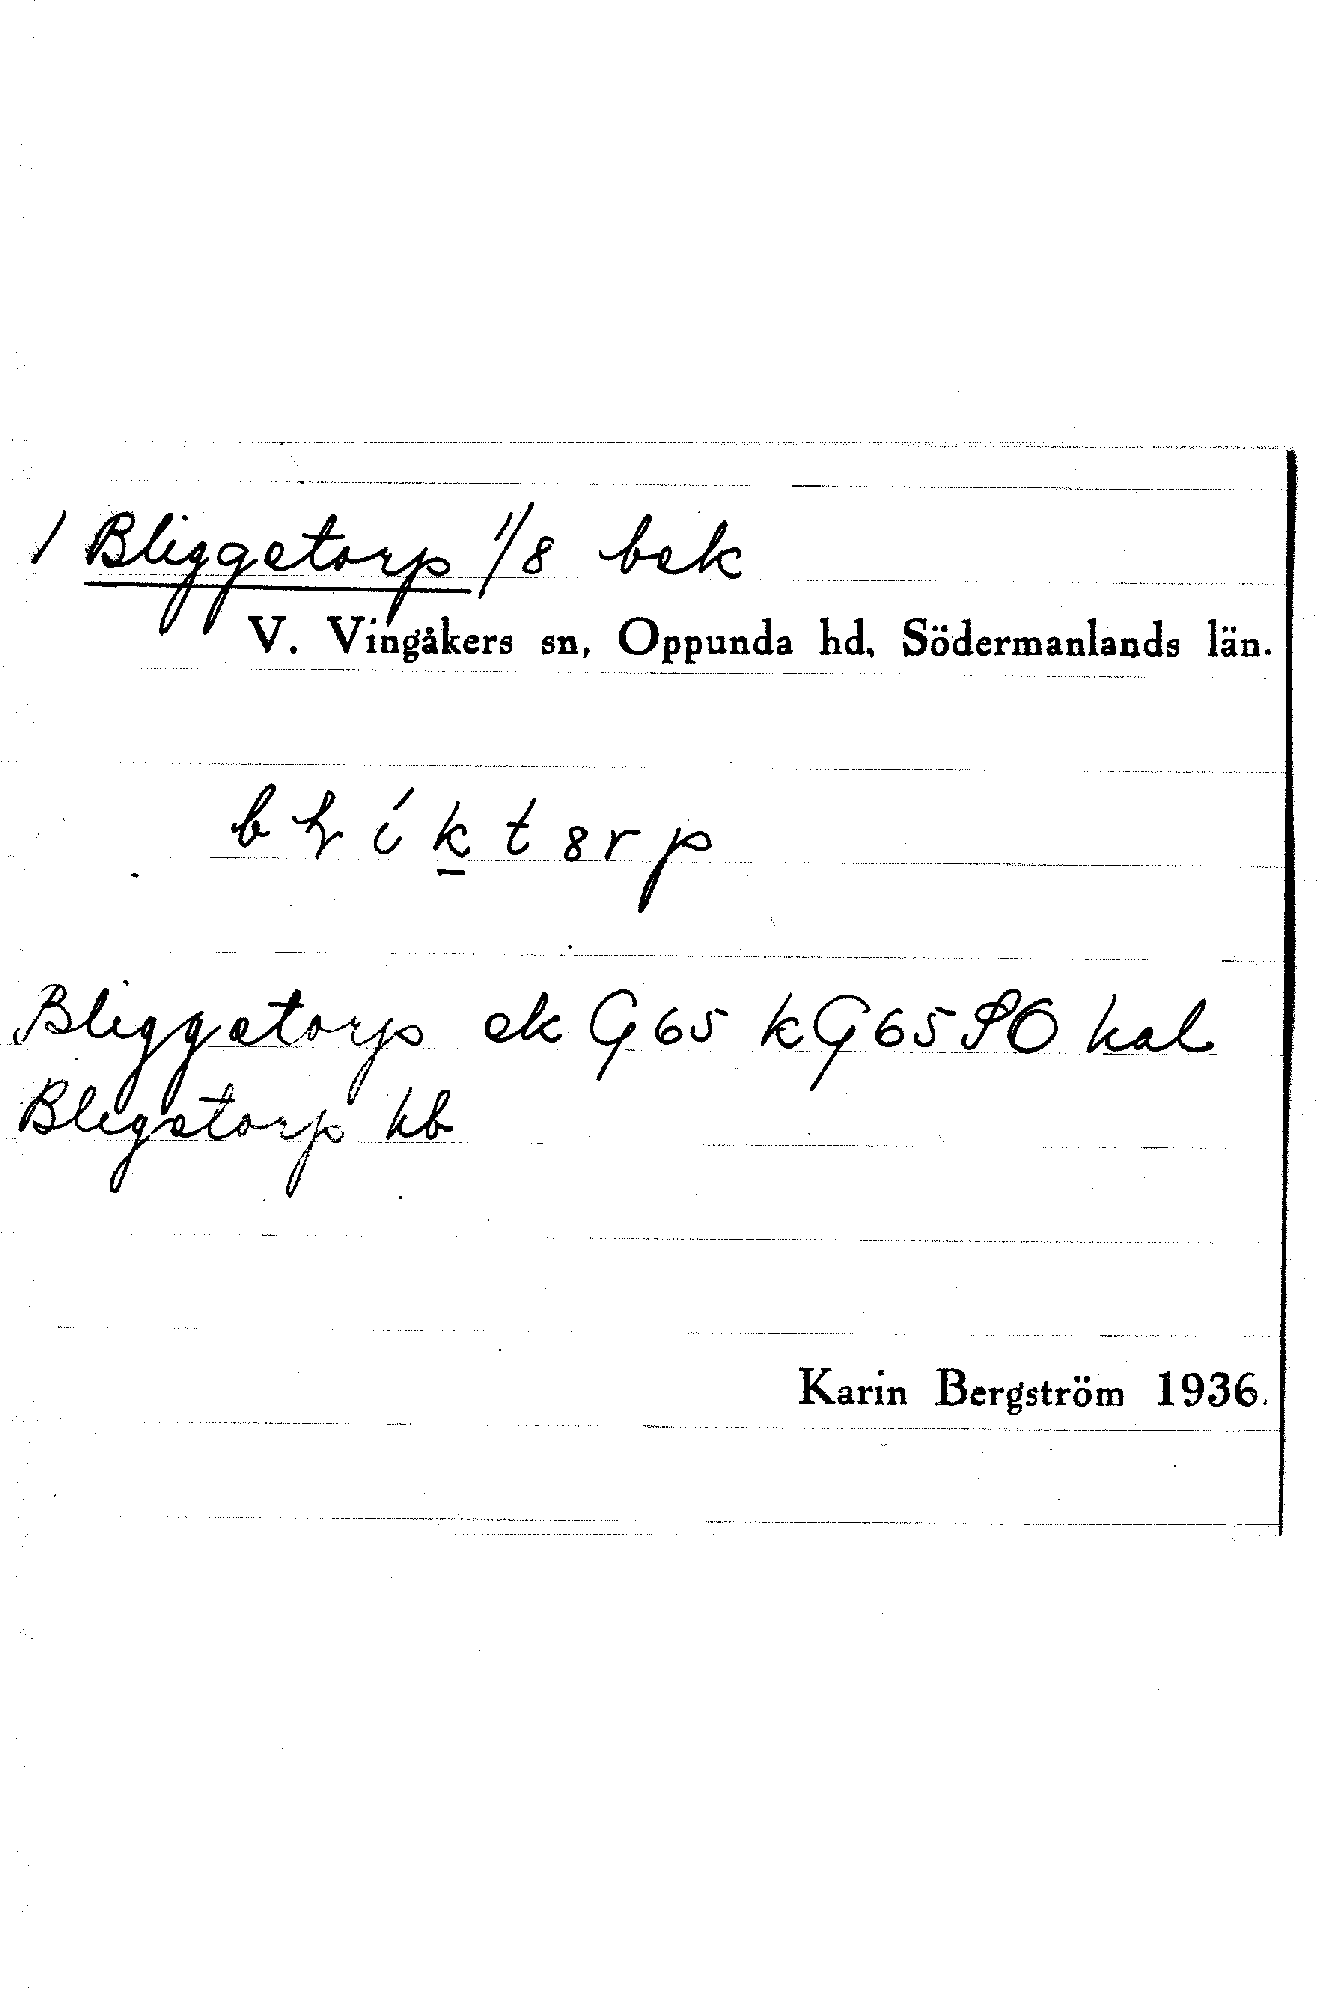 1 Bliggetorp 1/8 bek
V. Vingåkers sn, Oppunda hd, Södermanlands län.
Bliggetorp ek G 65 kG 65 SO kal
Bligetorp kb
Karin Bergström 1936.